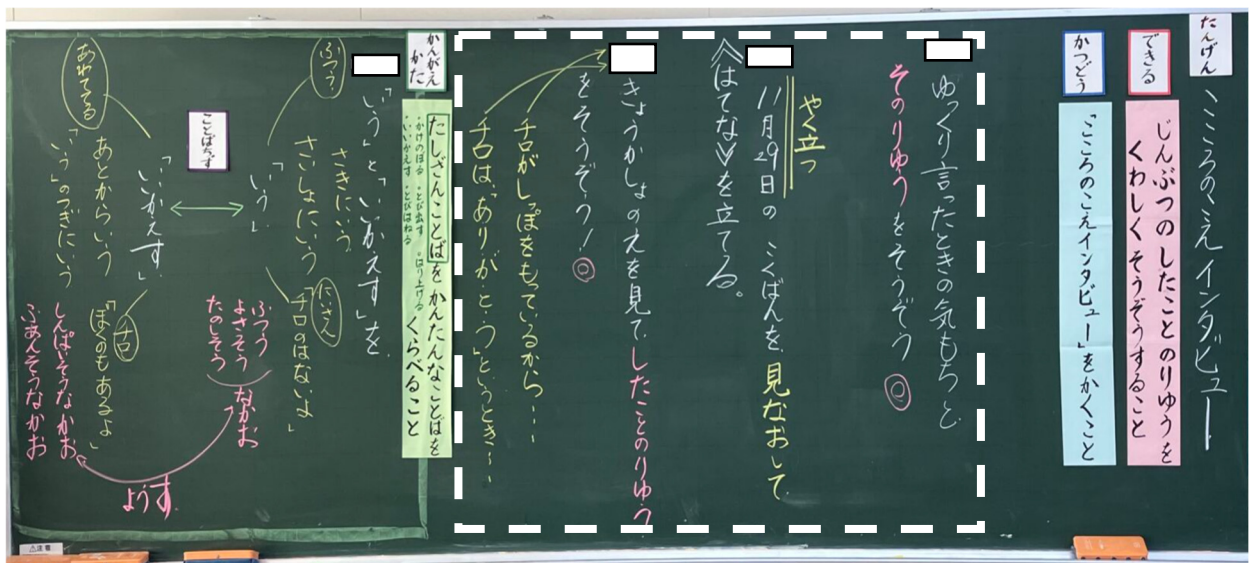 たんげん
こころのこえインタビュー
できる
じんぶつのしたことのりゆうを
くわしくそうぞうすること
かつどう
「こころのこえインタビュー」をかくこと
ゆっくり言ったときの気もちと
そのりゆうをそうぞう◎
やく立つ
11月29日のこくばんを、見なおして、
≪はてな≫を立てる。
きょうかしょのえを見て、したことのりゆう
をそうぞう!◎
チロがしっぽをもっているから…
チロは、「ありがとう」というとき…
かんがえかた
たしざんことばをかんたんなことばを
くらべること
・かけのぼる ・とび出す ・はり上げる
・いいかえす ・とびはねる
「いう」と「いいかえす」を
ふつう?
さきにいう
さいしょにいう
「いう」
だいさん
「チロのはないよ」
ふつう
よさそう
たのしそう
なかお
ことばちず
「いいかえす」
あわててる
あとからいう
「いう」のつぎにいう
チロ
「ぼくのもあるよ」
しんぱいそうなかお
ふあんそうなかお
ようす
注意